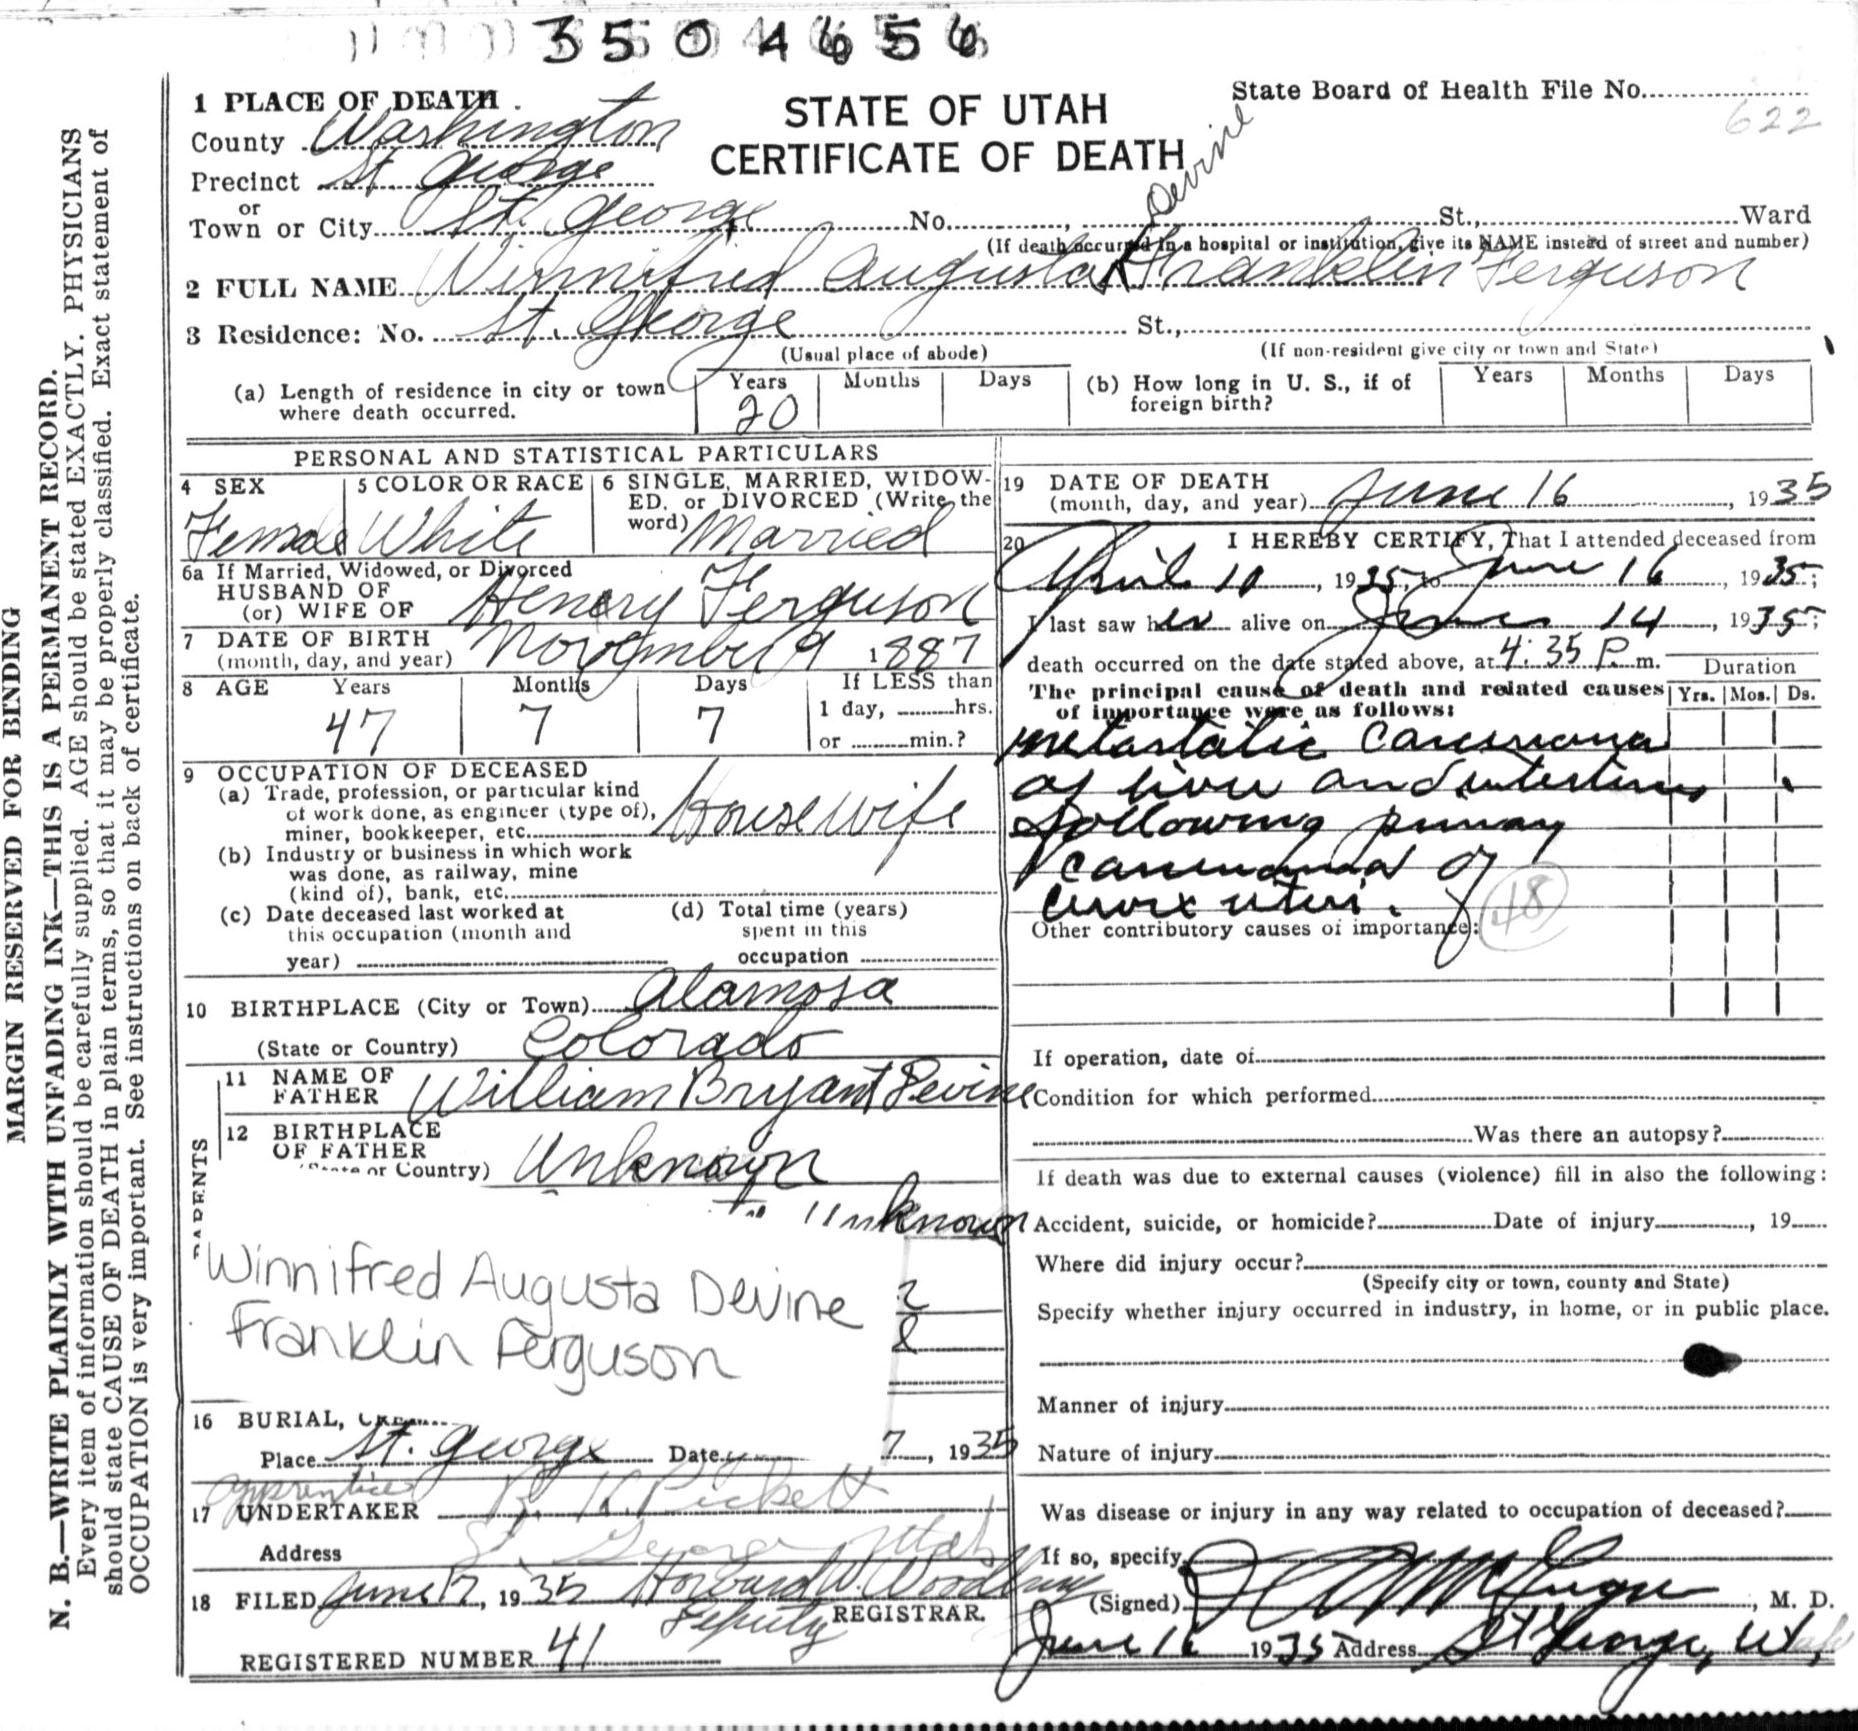 3504656
1 PLACE OF DEATH
STATE OF UTAH
CERTIFICATE OF DEATH
State Board of Health File No.
622
County Washington
Precinct St. George
or
Town or City St. George No. , St., Ward
(If death occurred in a hospital or institution, give its NAME instead of street and number)
Devine
2 FULL NAME Winnifred Augusta Franklin Ferguson
3 Residence: No. St. George St.,
(Usual place of abode) (If non-resident give city or town and State)
(a) Length of residence in city or town where death occurred. Years 20 Months Days
(b) How long in U. S., if of foreign birth? Years Months Days
PERSONAL AND STATISTICAL PARTICULARS
4 SEX Female
5 COLOR OR RACE White
6 SINGLE, MARRIED, WIDOWED, or DIVORCED (Write the word) Married
6a If Married, Widowed, or Divorced
HUSBAND OF
(or) WIFE OF Henery Ferguson
7 DATE OF BIRTH
(month, day, and year) November 9 1887
8 AGE Years 47 Months 7 Days 7 If LESS than
1 day, hrs.
or min.?
9 OCCUPATION OF DECEASED
(a) Trade, profession, or particular kind
of work done, as engineer (type of),
miner, bookkeeper, etc. House wife
(b) Industry or business in which work
was done, as railway, mine
(kind of), bank, etc.
(c) Date deceased last worked at
this occupation (month and
year)
(d) Total time (years)
spent in this
occupation
10 BIRTHPLACE (City or Town) Alamosa
(State or Country) Colorado
PARENTS
11 NAME OF FATHER William Bryant Devine
12 BIRTHPLACE
OF FATHER
(State or Country) Unknown
Unknown
Winnifred Augusta Devine
Franklin Ferguson
16 BURIAL,
Place St. George Date 7, 1935
apprentice
17 UNDERTAKER R. K. Pickett
Address St. George Utah
18 FILED June 17, 1935 Howard W. Woodbury
Deputy REGISTRAR.
REGISTERED NUMBER 41
19 DATE OF DEATH
(month, day, and year) June 16, 1935
20 I HEREBY CERTIFY, That I attended deceased from
April 10, 1935, to June 16, 1935;
I last saw her alive on June 14, 1935;
death occurred on the date stated above, at 4:35 P. m.
Duration
The principal cause of death and related causes
of importance were as follows:
Yrs. Mos. Ds.
metastatic carcinoma
of liver and intestines
following primary
carcinoma of
cervix uteri.
48
Other contributory causes of importance:
If operation, date of
Condition for which performed
Was there an autopsy?
If death was due to external causes (violence) fill in also the following:
Accident, suicide, or homicide? Date of injury , 19
Where did injury occur?
(Specify city or town, county and State)
Specify whether injury occurred in industry, in home, or in public place.
Manner of injury
Nature of injury
Was disease or injury in any way related to occupation of deceased?
If so, specify
(Signed) , M. D.
June 16 1935 Address St George, Utah
MARGIN RESERVED FOR BINDING
N. B.—WRITE PLAINLY WITH UNFADING INK—THIS IS A PERMANENT RECORD.
Every item of information should be carefully supplied. AGE should be stated EXACTLY. PHYSICIANS
should state CAUSE OF DEATH in plain terms, so that it may be properly classified. Exact statement of
OCCUPATION is very important. See instructions on back of certificate.